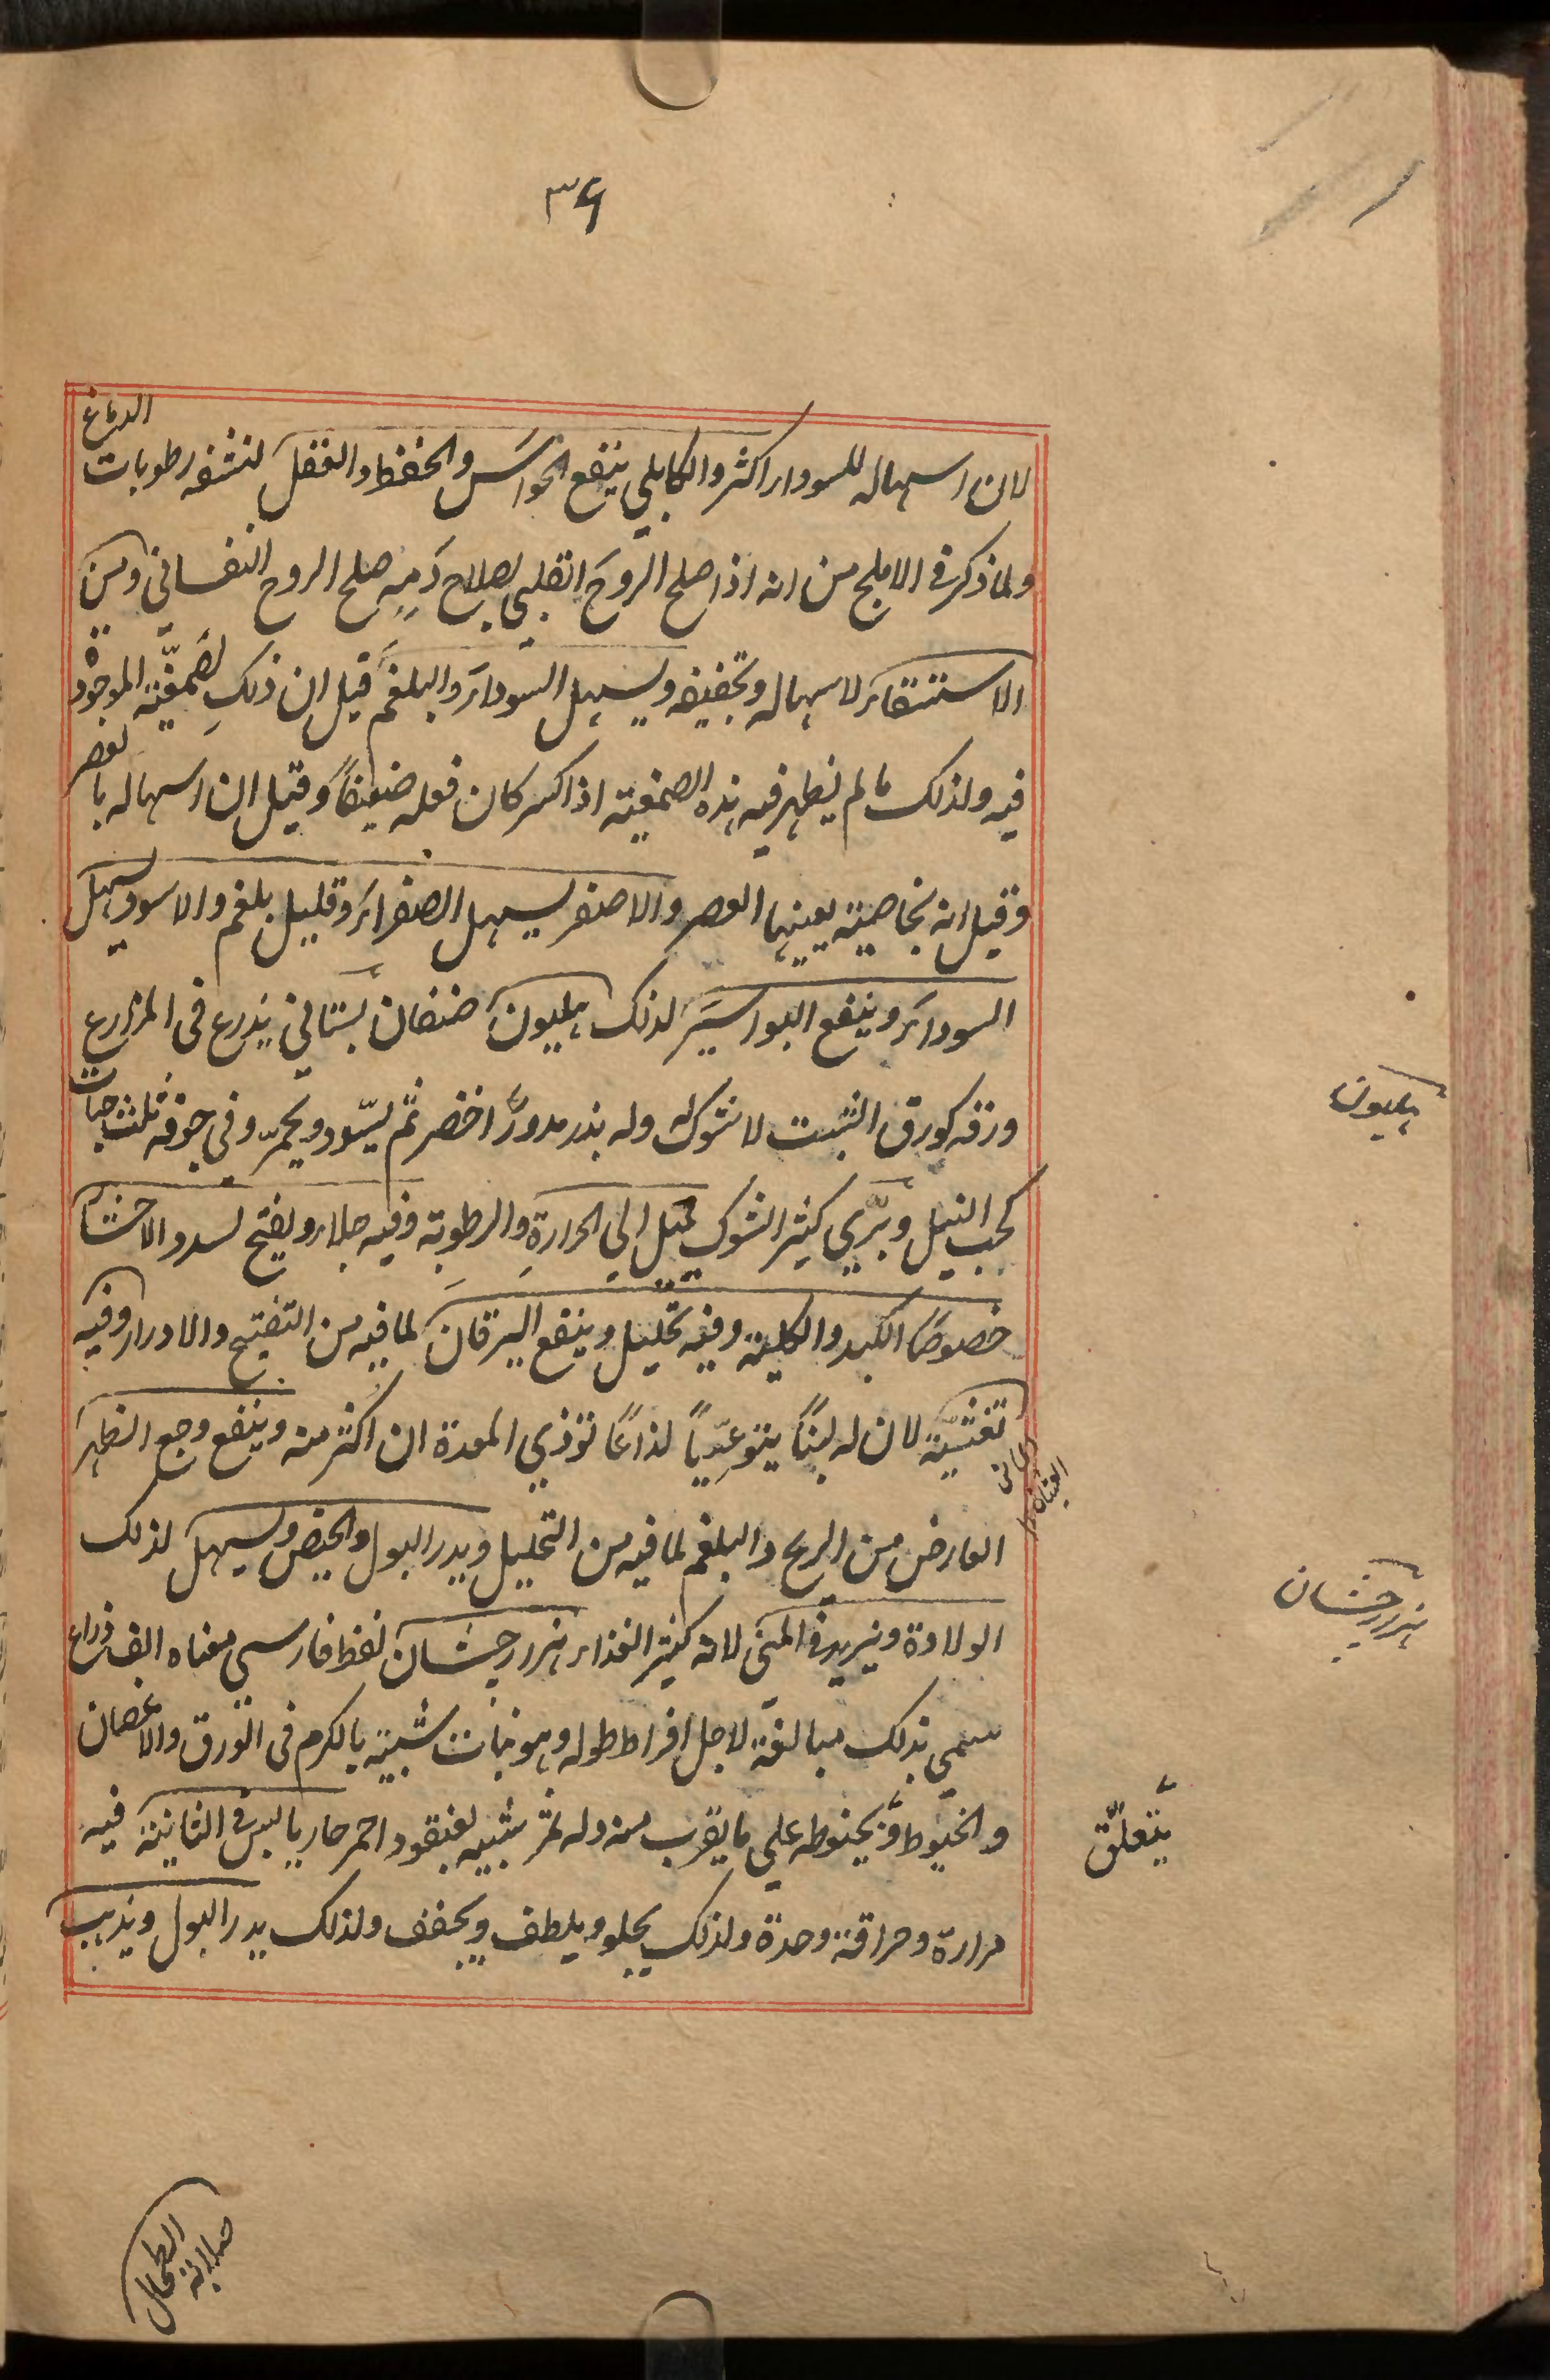 ٣٤
لان اسهاله للسوداء اكثر والكابلي ينفع الحواس والحفظ والعقل لنشفه رطوبات الدماغ
ولما ذكر في الاملج من انه اذا صلح الروح القلبي لصلاح دمه صلح الروح النفساني ومن
الاستسقاء لاسهاله وتجفيفه ويسهل السوداء والبلغم قيل ان ذلك لصمغية الموجودة
فيه ولذلك ما لم يظهر فيه هذه الصمغية اذا كسر كان فعله ضعيفاً وقيل ان اسهاله بالعصر
وقيل انه بخاصية يعينها العصر والاصفر يسهل الصفراء وقليل بلغم والاسود يسهل
السوداء وينفع البواسير لذلك هليون صنفان بستاني يذرع في المزارع
ورقه كورق الشبت لا شوك له وله بذر مدور اخضر ثم يسود ويحمر وفي جوفه ثلث حبات
كحب النيل وبري كثير الشوك يميل الى الحرارة والرطوبة وفيه جلاء ويفتح لسدد الاحشا
خصوصا الكبد والكلية وفيه تحليل وينفع اليرقان لما فيه من التفتيح والادرار وفيه
تغثية لان له لبناً يتوعياً لذاعاً تؤذي المعدة ان اكثر منه وينفع وجع الظهر
العارض من الريح والبلغم لما فيه من التحليل ويدر البول والحيض ويسهل لذلك
الولادة ويزيد في المني لانه كثير الغذاء هزارجشان لفظ فارسي معناه الف ذراع
سمي بذلك مبالغة لاجل افراط طوله وهو نبات شبيه بالكرم في الورق والاغصان
والخيوط وبخيوطه على ما يقرب منه وله ثمر شبيه بعنقود احمر حار يابس في الثانية فيه
مرارة وحراقة وحدة ولذلك يجلو ويلطف ويجفف ولذلك يدر البول ويذهب
هليون
هزارجشان
يتعلق
صلابة الطحال